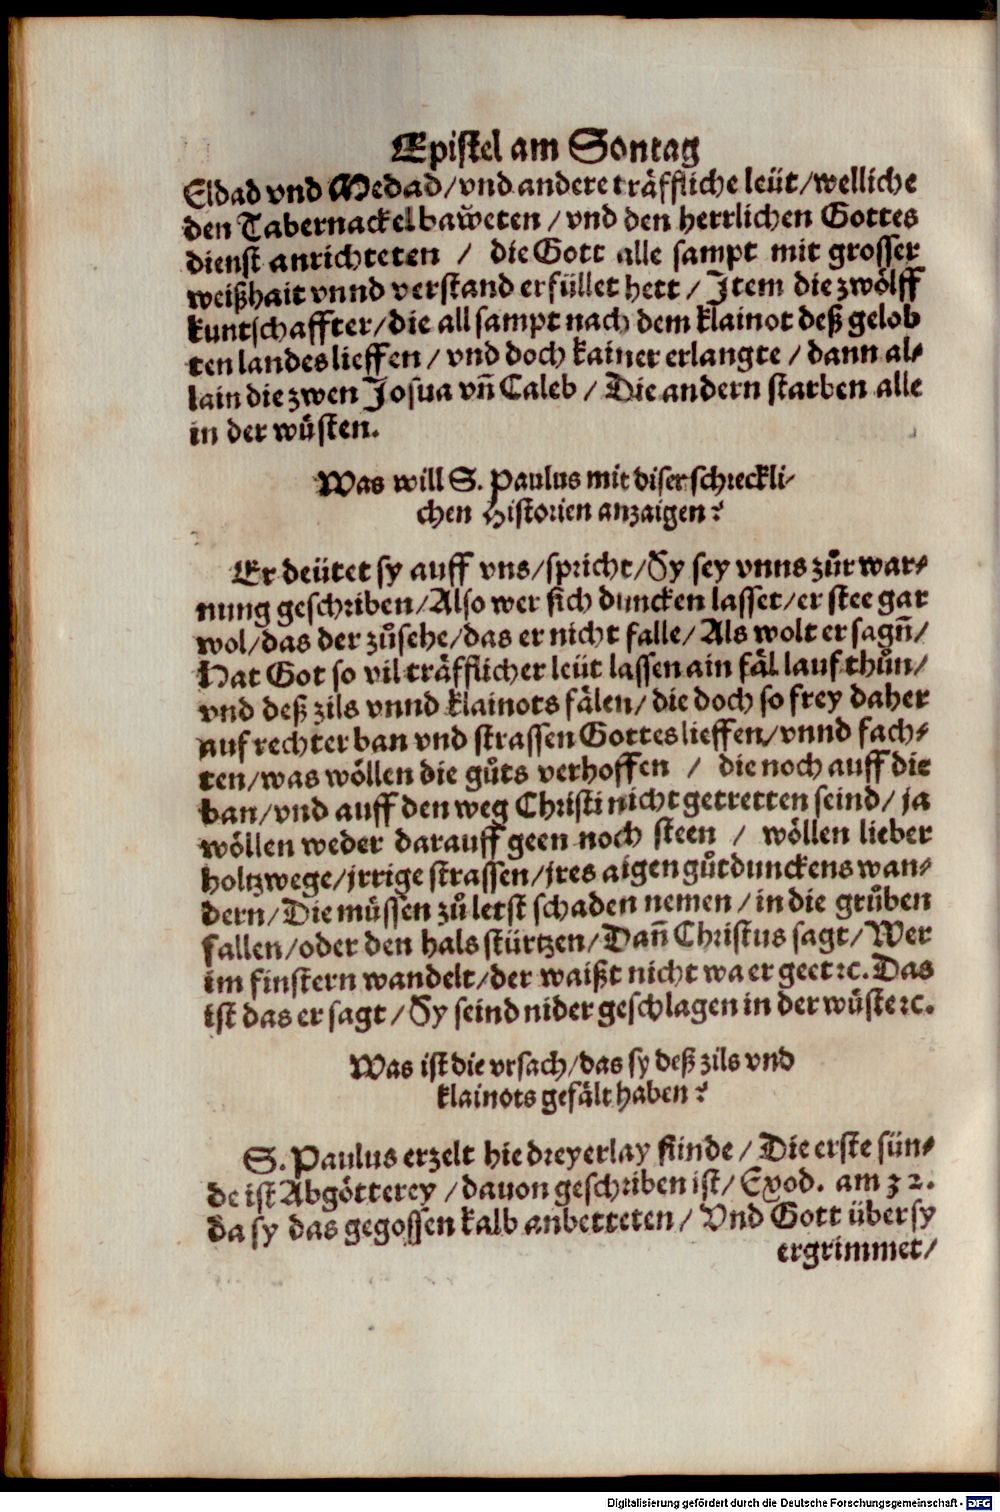 Epistel am Sontag
Eldad vnd Medad/vnd andere träffliche leüt/welliche
den Tabernackel baẅeten / vnd den herrlichen Gottes
dienst anrichteten / die Gott alle sampt mit grosser
weißhait vnnd verstand erfüllet hett / Item die zwölff
kuntschaffter/die all sampt nach dem klainot deß gelob
ten landes lieffen / vnd doch kainer erlangte / dann al-
lain die zwen Josua vn̄ Caleb / Die andern starben alle
in der wüsten.
Was will S. Paulus mit diser schreckli-
chen Historien anzaigen?
Er deütet sy auff vns/spricht/Sy sey vnns zůr war-
nung geschriben/Also wer sich duncken lasset/er stee gar
wol/das der zůsehe/das er nicht falle/Als wolt er sagn̄/
Hat Got so vil träfflicher leüt lassen ain fäl lauf thůn/
vnd deß zils vnnd klainots fälen/ die doch so frey daher
auf rechter ban vnd strassen Gottes lieffen/vnnd fach-
ten/was wöllen die gůts verhoffen / die noch auff die
ban/vnd auff den weg Christi nicht getretten seind/ ja
wöllen weder darauff geen noch steen / wöllen lieber
holtzwege/jrrige strassen/jres aigen gůtdunckens wan-
dern/Die müssen zů letst schaden nemen / in die grůben
fallen/oder den hals stürtzen/Dan̄ Christus sagt/Wer
im finstern wandelt/der waißt nicht wa er geet ꝛc. Das
ist das er sagt / Sy seind nider geschlagen in der wüste ꝛc.
Was ist die vrsach/das sy deß zils vnd
klainots gefält haben?
S. Paulus erzelt hie dreyerlay sünde / Die erste sün-
de ist Abgötterey / dauon geschriben ist/ Exod. am 32.
da sy das gegossen kalb anbetteten / Vnd Gott über sy
ergrimmet/
Digitalisierung gefördert durch die Deutsche Forschungsgemeinschaft - DFG